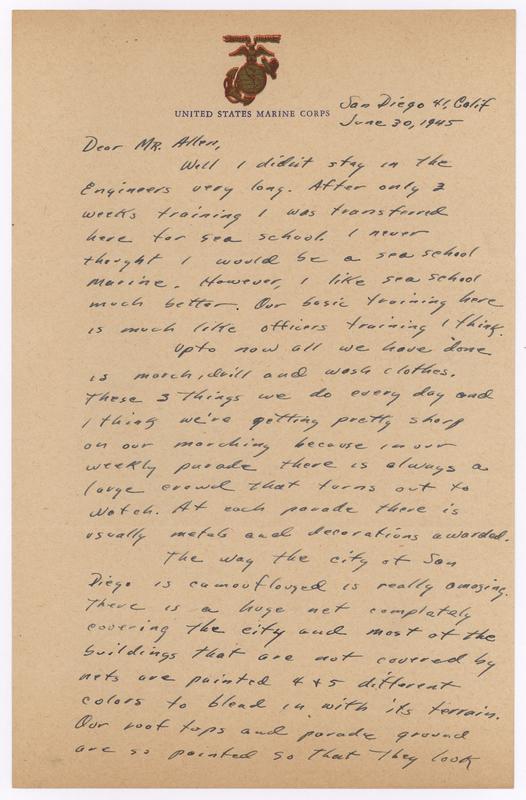 UNITED STATES MARINE CORPS
San Diego 41, Calif
June 30, 1945
Dear Mr. Allen,
Well I didn't stay in the
Engineers very long. After only 3
weeks training I was transferred
here for sea school. I never
thought I would be a sea school
Marine. However, I like sea school
much better. Our basic training here
is much like officers training I think.
Upto now all we have done
is march, drill and wash clothes.
These 3 things we do every day and
I think we're getting pretty sharp
on our marching because in our
weekly parade there is always a
large crowd that turns out to
watch. At each parade there is
usually metals and decorations awarded.
The way the city of San
Diego is camouflouged is really amazing.
There is a huge net completely
covering the city and most of the
buildings that are not covered by
nets are painted 4 & 5 different
colors to blend in with its terrain.
Our roof tops and parade ground
are so painted so that they look